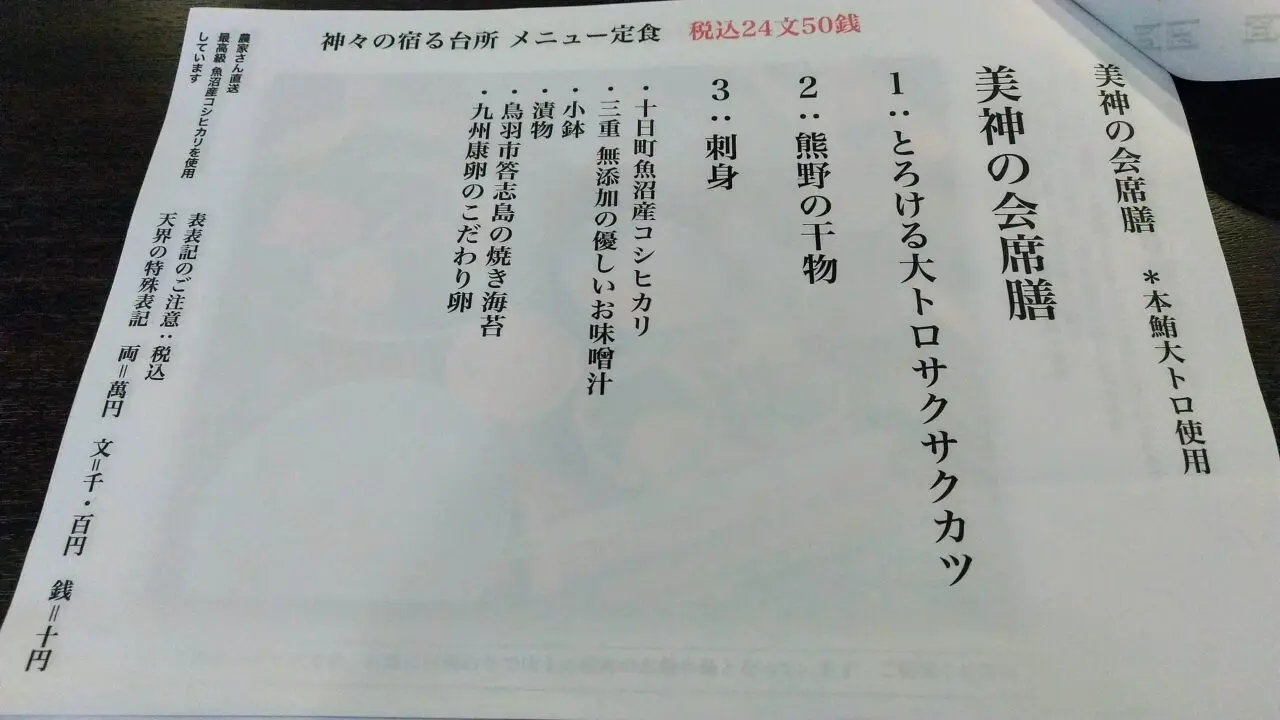 神々の宿る台所 メニュー定食 税込24文50銭
美神の会席膳 *本鮪大トロ使用
美神の会席膳
1:とろける大トロサクサクカツ
2:熊野の干物
3:刺身
・十日町魚沼産コシヒカリ
・三重 無添加の優しいお味噌汁
・小鉢
・漬物
・鳥羽市答志島の焼き海苔
・九州康卵のこだわり卵
農家さん直送
最高級 魚沼産コシヒカリを使用
しています
表表記のご注意:税込
天界の特殊表記 両=萬円 文=千・百円 銭=十円